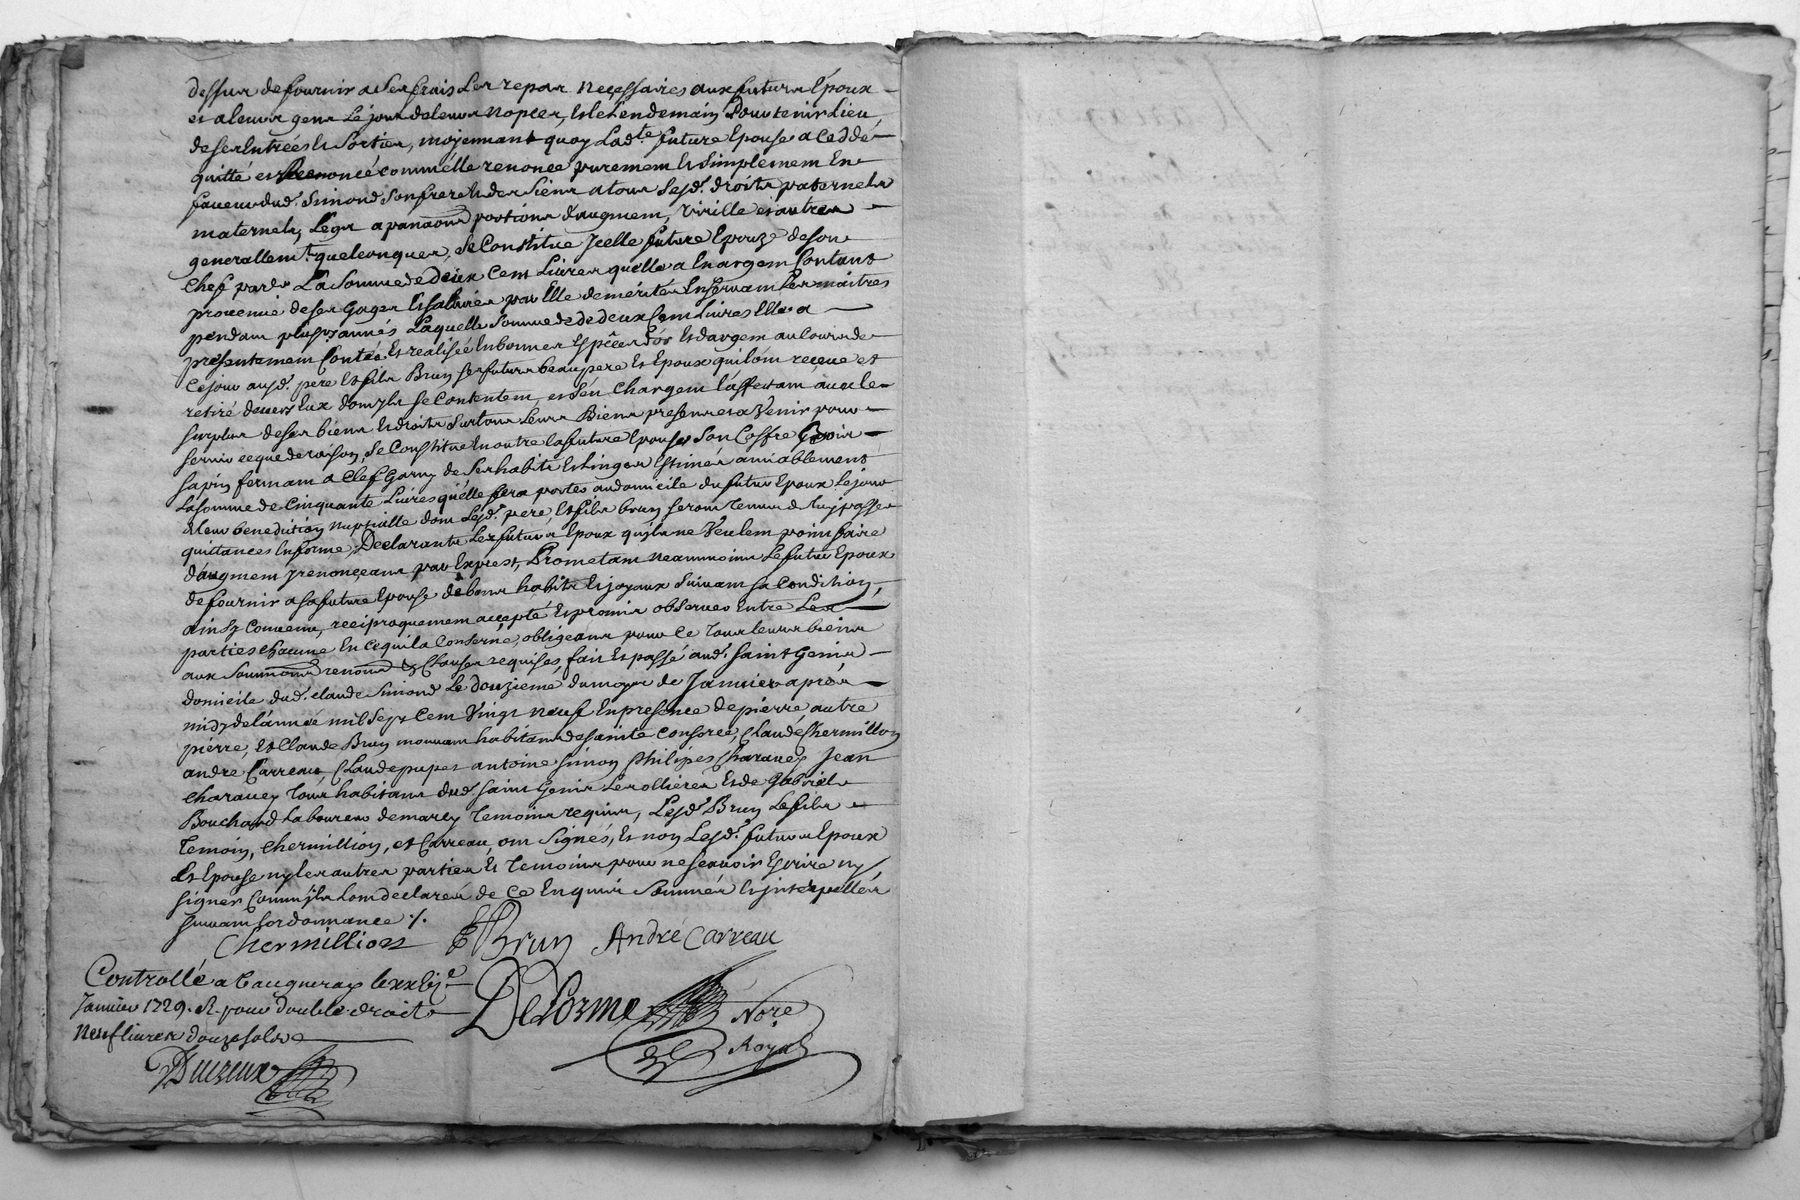 dessus de fournir a ses frais les repas necessaires aux futurs Epoux
et a leurs gens le jour de leurs nopces, et le Lendemain Pour tenir Lieu
de ses Entrées et Sorties, moyennant quoy Lad.te future Epouse a Ceddé
quitté et Renoncé comme elle renonce purement et simplement En
faveur dud. Simond son frere et des siens a tous sesd. droits paternels
maternels, Legs a portions d'augment, virille et autres
generallem.t quelconques, se Constitue Jcelle future Epouze de son
Chef par La Somme de Deux Cent Livres qu'elle a En argent Contant
provenüe de ses Gages Et sallaires par Elle demérités En servant Les maitres
pendant plusrs années Laquelle Somme de de deux Cent Livres Elle a
presentement Contée Et realisée En bonnes Espéces d'or Et d'argent au Cours de
Ce jour ausd. pere Et fils Brun ses futurs beaupere Et Epoux qui l'ont reçeue et
retiré devers Eux dont Ils se Contentent, et s'en Chargent l'affectant avec le
surplus de ses biens Et droits sur tous Leurs Biens presents et a Venir pour
servir ce que de raison, Se Constitue En outre la future Epouse Son Coffre Bois
sapin fermant a Clef Garny de ses habits Et Linges Estimés amiablement
La Somme de Cinquante Livres qu'elle fera porter au domicile du futur Epoux Le jour
de leur benediction nuptialle dont Lesd. pere Et fils brun seront Tenus de Luy passer
quittances En forme, Declarants Les futurs Epoux qu'ils ne Veulent point faire
d'augment y renonçeans par Exprest, Prometant neanmoins Le futur Epoux
de fournir a sa future Epouse de bons habits Et joyaux Suivant sa Condition,
ainsy Convenu, reciproquement accepté Et promis observer Entre Les
parties chacune En Ce qui la Conserne, obligeans pour Ce Tous leurs biens
aux Soumons renons & Clauses requises, fait Et passé aud. Saint Genis
domicile dud. claude Simond Le douzieme du moys de Janvier après
midy de l'année mil Sept Cent Vingt neuf En presence de pierre autre
pierre, Et Claude Brun habitans de sainte Consorce, Claude Chermillion
andré Carreau, Claude pupet antoine simon Philipes Charavey Jean
Charavey Tous habitans dud. Saint Genis Lerollieres Et de Gabriel
Bouchard Laboureur de marcy Temoins requis, Lesd. Brun Le fils
Temoin, Chermillion, et Carreau ont Signés, Et non Lesd. futurs Epoux
Et Epouse ny les autres parties Et Temoins pour ne Scavoir Escrire ny
signer Comm'ils L'ont declarés de Ce Enquis Sommés Et interpellés
suivant l'ordonnance ./.
Chermillion Brun André Carreau
Controllé a Vaugneray le
Janvier 1729. R. pour double droit
neuf livres douze sols
DeLorme No.re
Royal